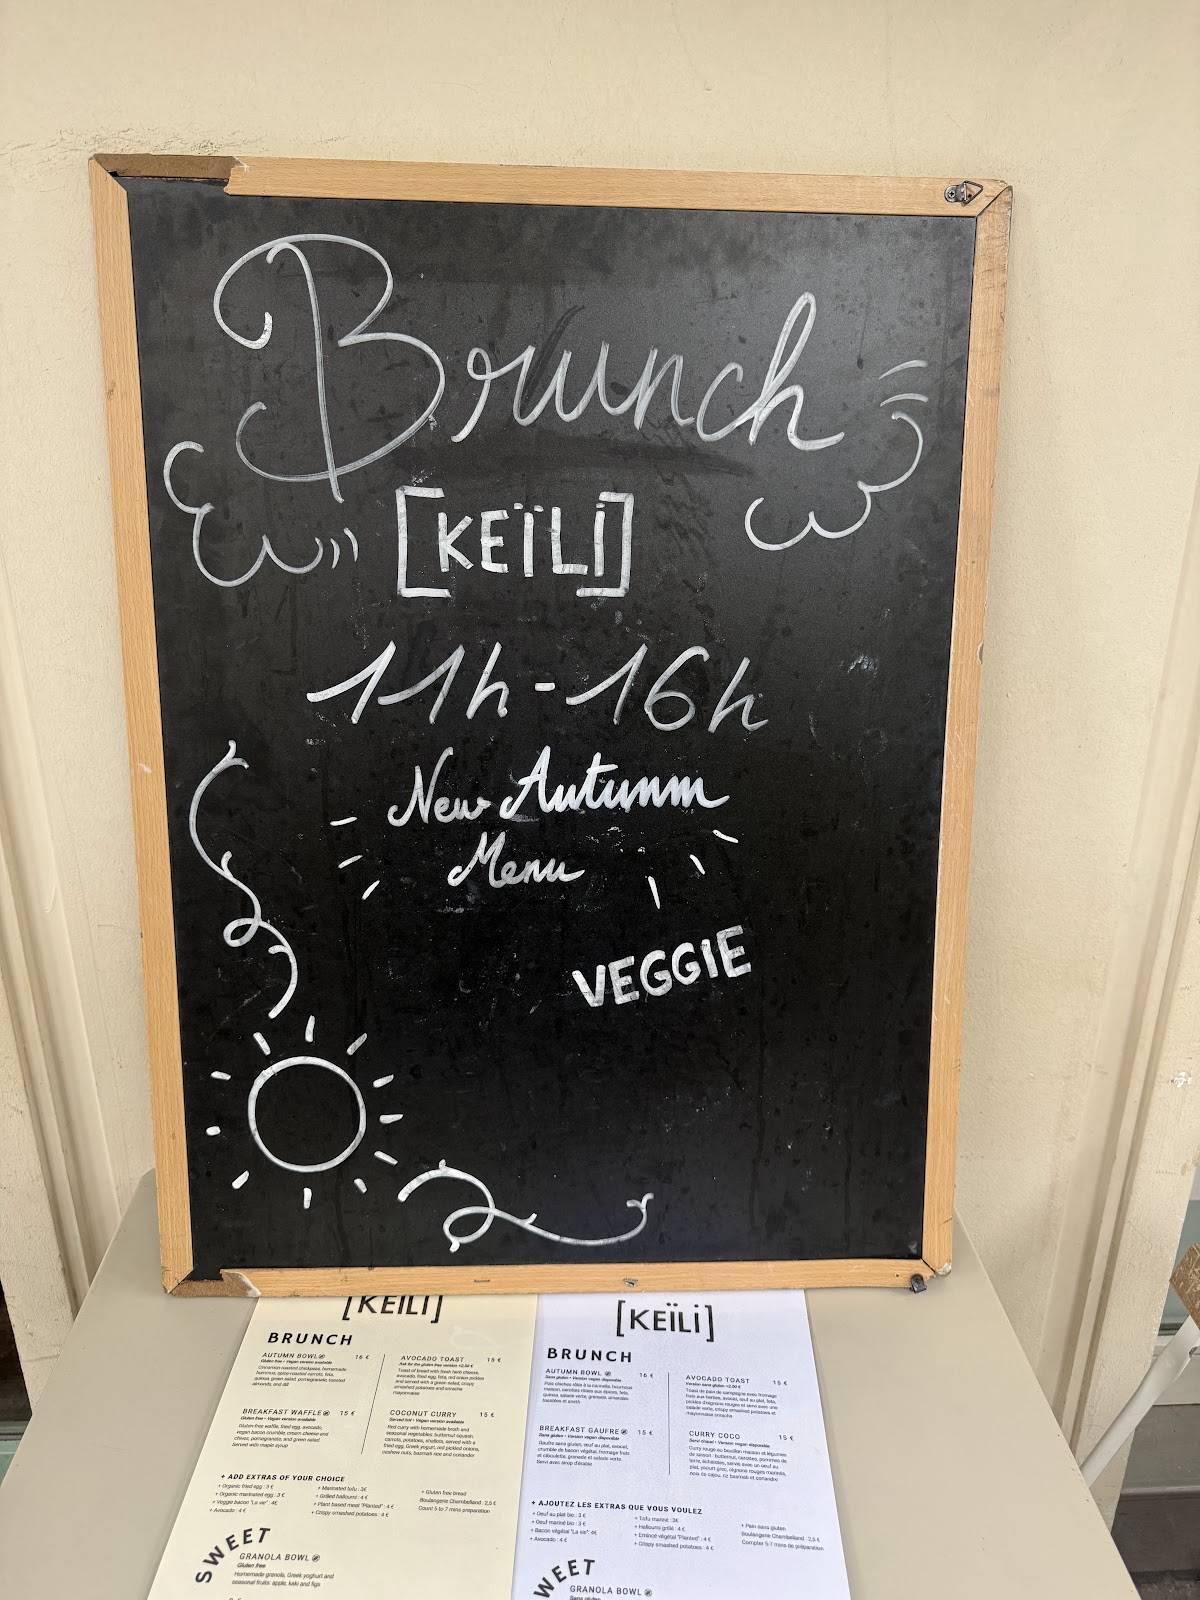 Brunch
[KEÏLI]
11h-16h
New Autunm
Menu
VEGGIE
[KEÏLI]
BRUNCH
AUTUMN BOWL 16 €
Gluten free • Vegan version available
Cinnamon roasted chickpeas, homemade
hummus, spice-roasted carrots, feta,
quinoa, green salad, pomegranate, toasted
almonds, and dill
AVOCADO TOAST 15 €
Ask for the gluten free version +2,00 €
Toast of bread with fresh herb cheese,
avocado, fried egg, feta, red onion pickles
and served with a green salad, crispy
smashed potatoes and sriracha
mayonnaise
BREAKFAST WAFFLE 15 €
Gluten free • Vegan version available
Gluten-free waffle, fried egg, avocado,
vegan bacon crumble, cream cheese and
chives, pomegranate, and green salad
Served with maple syrup
COCONUT CURRY 15 €
Served hot • Vegan version available
Red curry with homemade broth and
seasonal vegetables: butternut squash,
carrots, potatoes, shallots, served with a
fried egg, Greek yogurt, red pickled onions,
cashew nuts, basmati rice and coriander
+ ADD EXTRAS OF YOUR CHOICE
+ Organic fried egg : 3 €
+ Organic marinated egg : 3 €
+ Veggie bacon "La vie" : 4€
+ Avocado : 4 €
+ Marinated tofu : 3€
+ Grilled halloumi : 4 €
+ Plant based meat "Planted" : 4 €
+ Crispy smashed potatoes : 4 €
+ Gluten free bread
Boulangerie Chambelland : 2,5 €
Count 5 to 7 mins preparation
SWEET
GRANOLA BOWL
Gluten free
Homemade granola, Greek yoghurt and
seasonal fruits: apple, kaki and figs
[KEÏLI]
BRUNCH
AUTUMN BOWL 16 €
Sans gluten • Version vegan disponible
Pois chiches rôtis à la cannelle, houmous
maison, carottes rôties aux épices, feta,
quinoa, salade verte, grenade, amandes
torréfiées et aneth
AVOCADO TOAST 15 €
Version sans gluten +2.00 €
Toast de pain de campagne avec fromage
frais aux herbes, avocat, œuf au plat, feta,
pickles d'oignons rouges et servi avec une
salade verte, crispy smashed potatoes et
mayonnaise sriracha
BREAKFAST GAUFRE 15 €
Sans gluten • Version vegan disponible
Gaufre sans gluten, œuf au plat, avocat,
crumble de bacon végétal, fromage frais
et ciboulette, grenade et salade verte.
Servi avec sirop d'érable
CURRY COCO 15 €
Servi chaud • Version vegan disponible
Curry rouge au bouillon maison et légumes
de saison : butternut, carottes, pommes de
terre, échalotes, servis avec un œuf au
plat, yaourt grec, oignons rouges marinés,
noix de cajou, riz basmati et coriandre
+ AJOUTEZ LES EXTRAS QUE VOUS VOULEZ
+ Oeuf au plat bio : 3 €
+ Oeuf mariné bio : 3 €
+ Bacon végétal "La vie": 4€
+ Avocado : 4 €
+ Tofu mariné : 3€
+ Halloumi grillé : 4 €
+ Emincé végétal "Planted" : 4 €
+ Crispy smashed potatoes : 4 €
+ Pain sans gluten
Boulangerie Chambelland : 2,5 €
Compter 5-7 mins de préparation
WEET
GRANOLA BOWL
Sans gluten